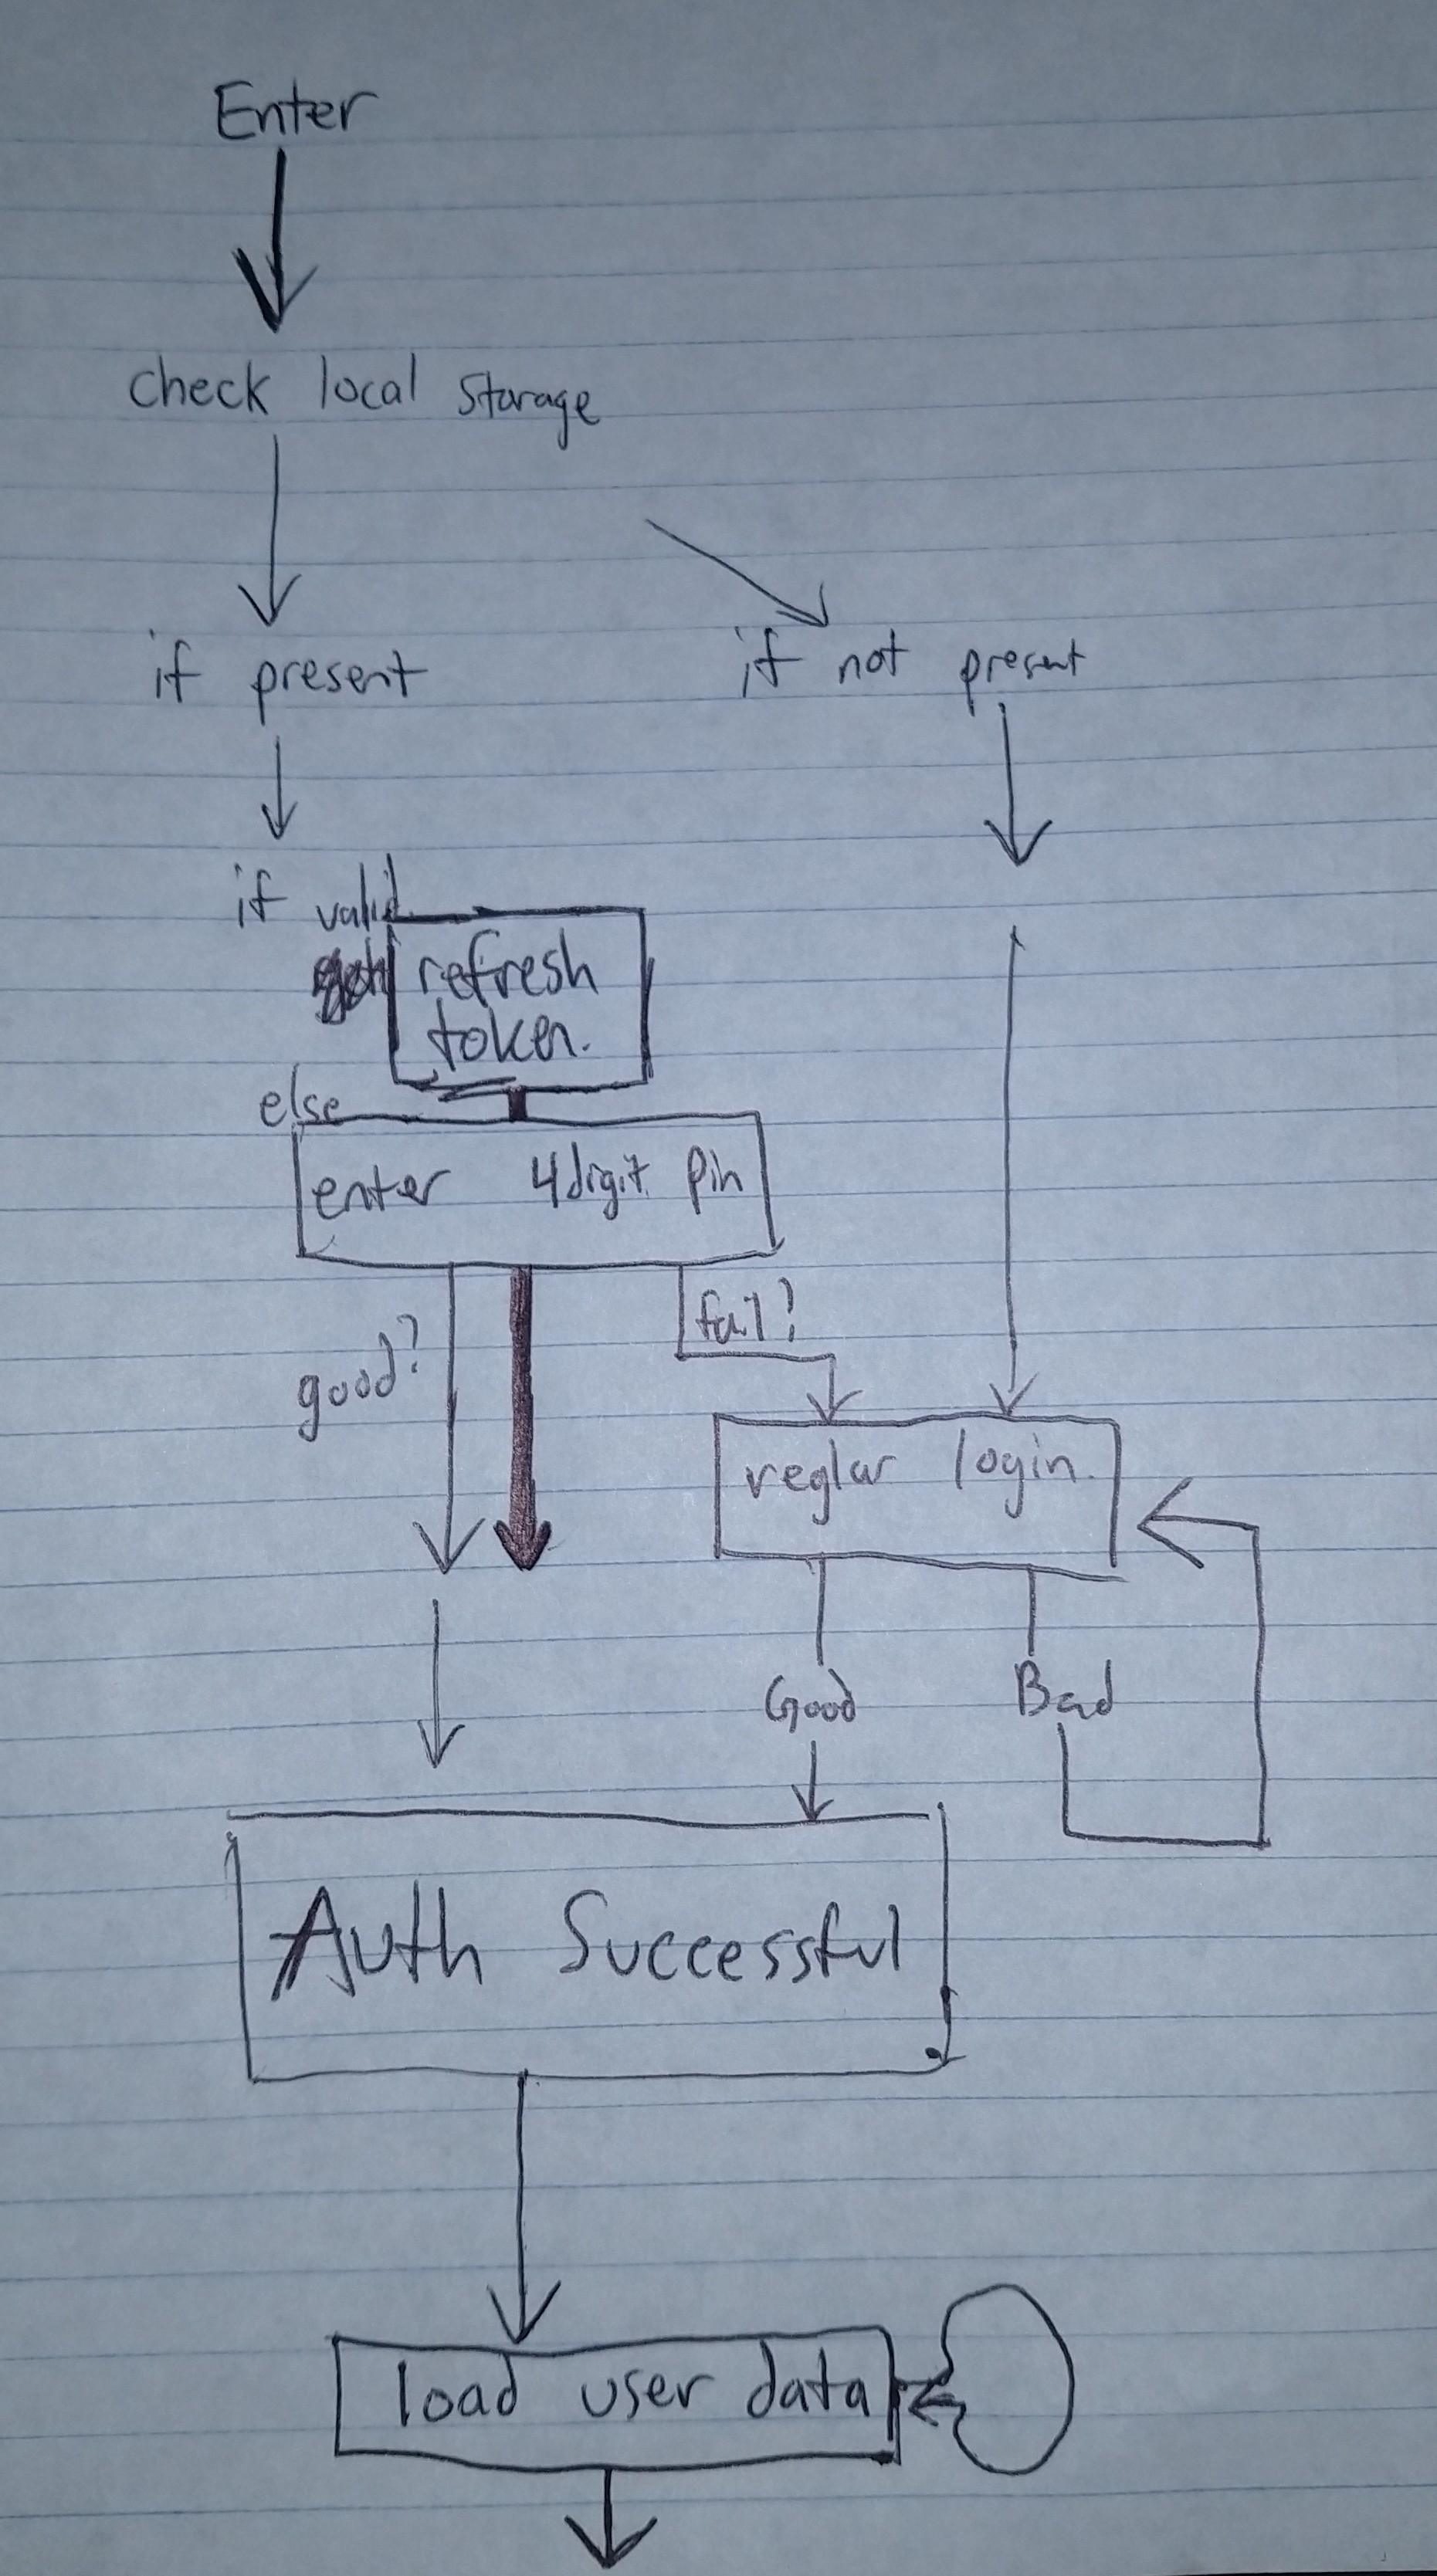 Enter
check local storage
if present
if not present
if valid
refresh
token.
else
enter 4digit pin
good?
fail?
reglar login.
Good
Bad
Auth Successful
load user data